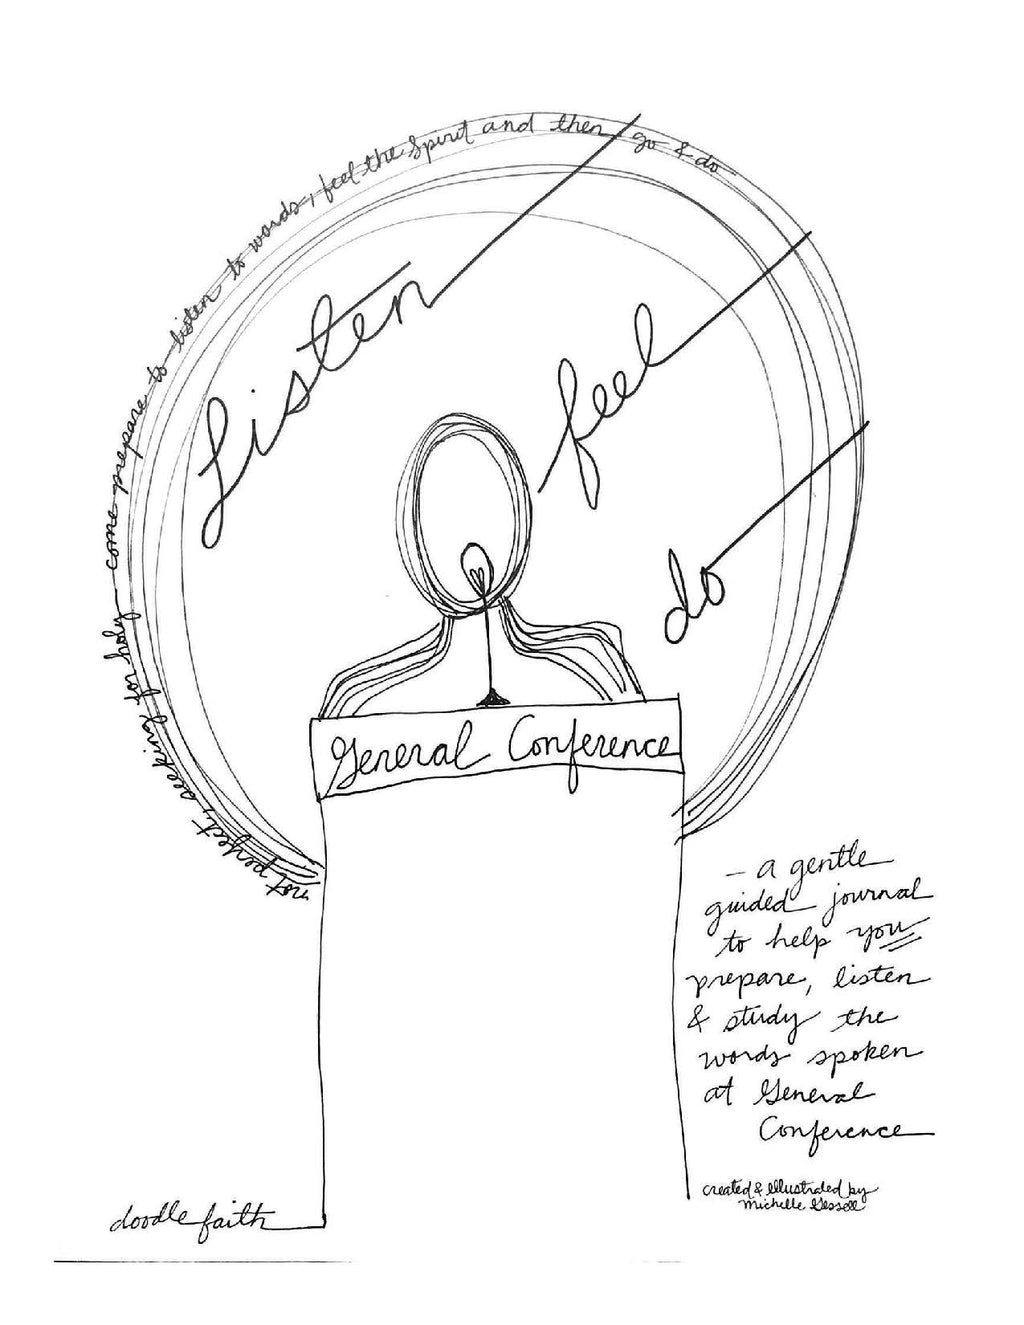 not perfect; seeking for holy - come prepare to listen to words, feel the Spirit and then go & do
Listen
feel
do
General Conference
- a gentle
guided journal
to help you
prepare, listen
& study the
words spoken
at General
Conference
created & illustrated by
Michelle Gessell
doodle faith